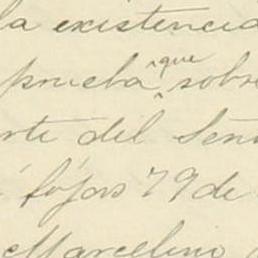 la existencia
prueba ^que^ sobre
rte del Seño
á fójas 79 de
Marcelino